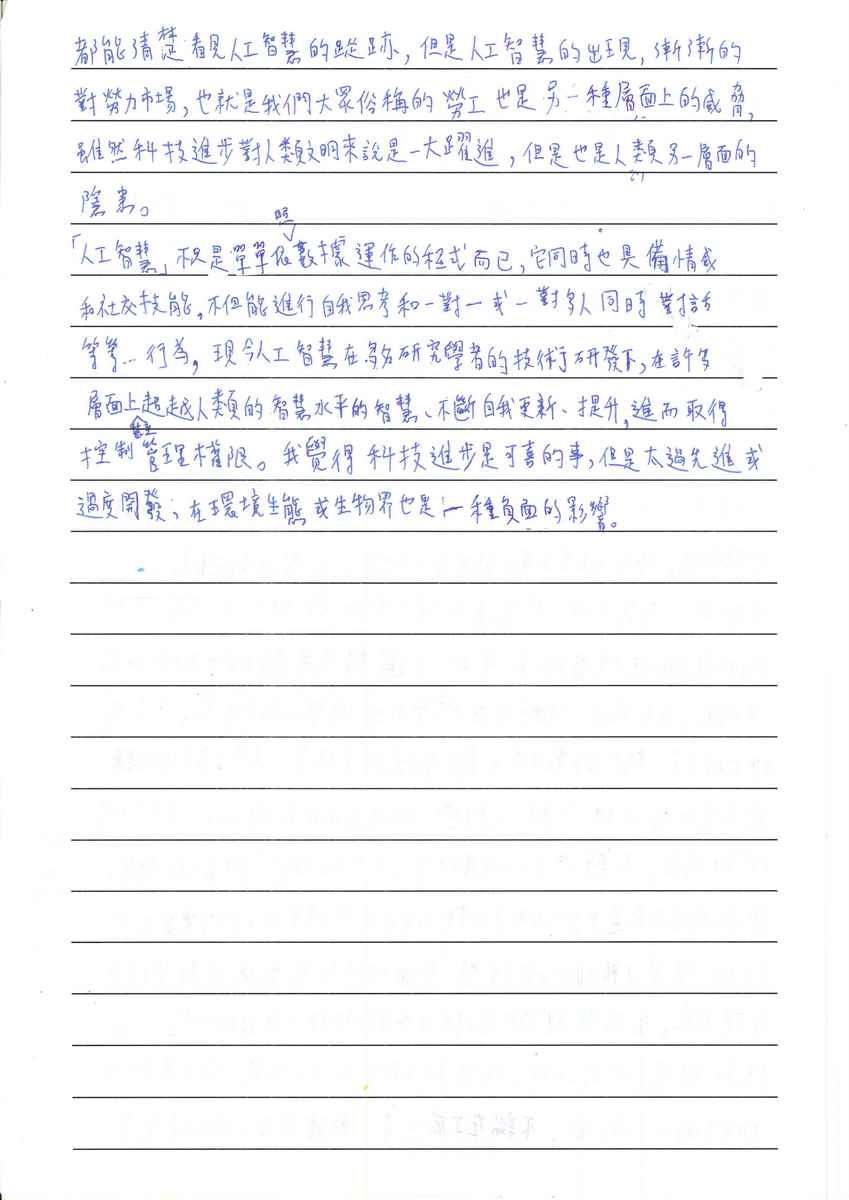 都能清楚看見人工智慧的蹤跡，但是人工智慧的出現，漸漸的
對勞力市場，也就是我們大眾俗稱的勞工也是另一種層面上的威脅，
雖然科技進步對人類文明來說是一大躍進，但是也是人類另一層面的
隱患。
「人工智慧」不只是單單照數據運作的程式而已，它同時也具備情感
和社交技能，不但能進行自我思考和一對一或一對多人同時對話
等等…行為，現今人工智慧在多名研究學者的技術研發下，在許多
層面上超越人類的智慧水平的智慧、不斷自我更新、提升，進而取得
控制管理權限。我覺得科技進步是可喜的事，但是太過先進或
過度開發、在環境生態或生物界也是一種負面的影響。